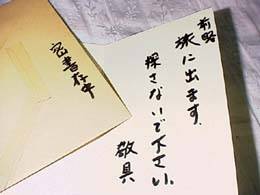 前略
旅に出ます。
探さないで下さい。
敬具
密書在中